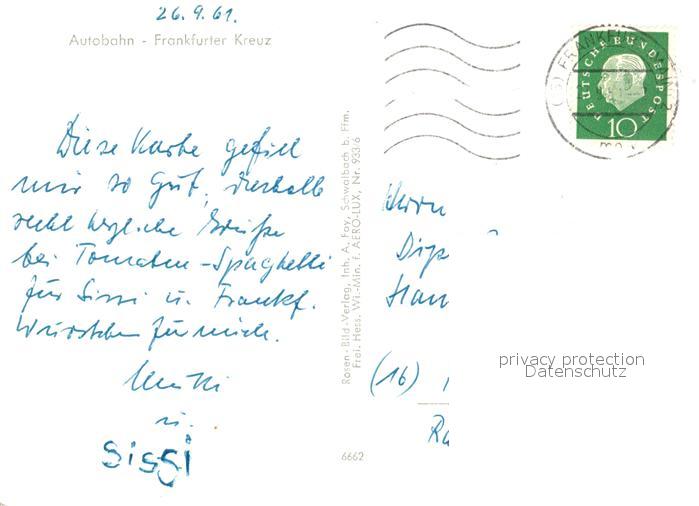 26.9.61.
Autobahn - Frankfurter Kreuz
Diese Karte gefiel
mir so gut, deshalb
recht herzliche Grüße
bei Tomaten-Spaghetti
für Sissi u. Frankf.
Würstchen für mich.
Mutti
u.
Sissi
Rosen-Bild-Verlag, Inh. A. Foy, Schwalbach b. Ffm.
Frei. Hess. Wi.-Min. f. AERO-LUX, Nr. 933/6
6662
DEUTSCHE BUNDESPOST
10
Herrn
Dipl
(16)
privacy protection
Datenschutz